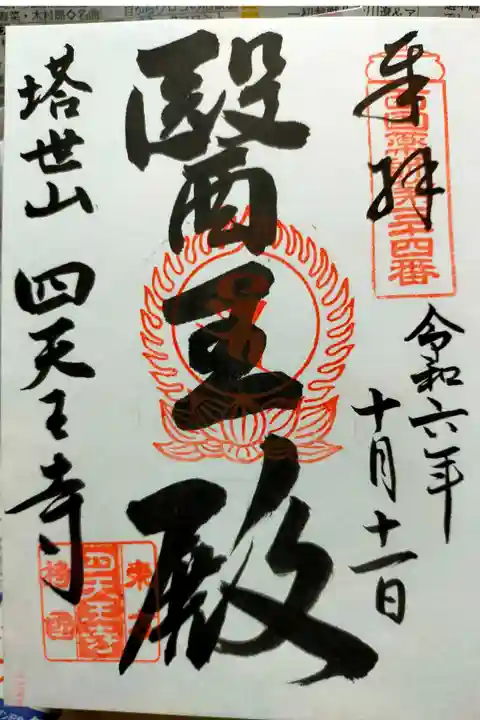 奉拝
西国薬師第三十四番
令和六年
十月十一日
醫王殿
塔世山 四天王寺
四天王寺